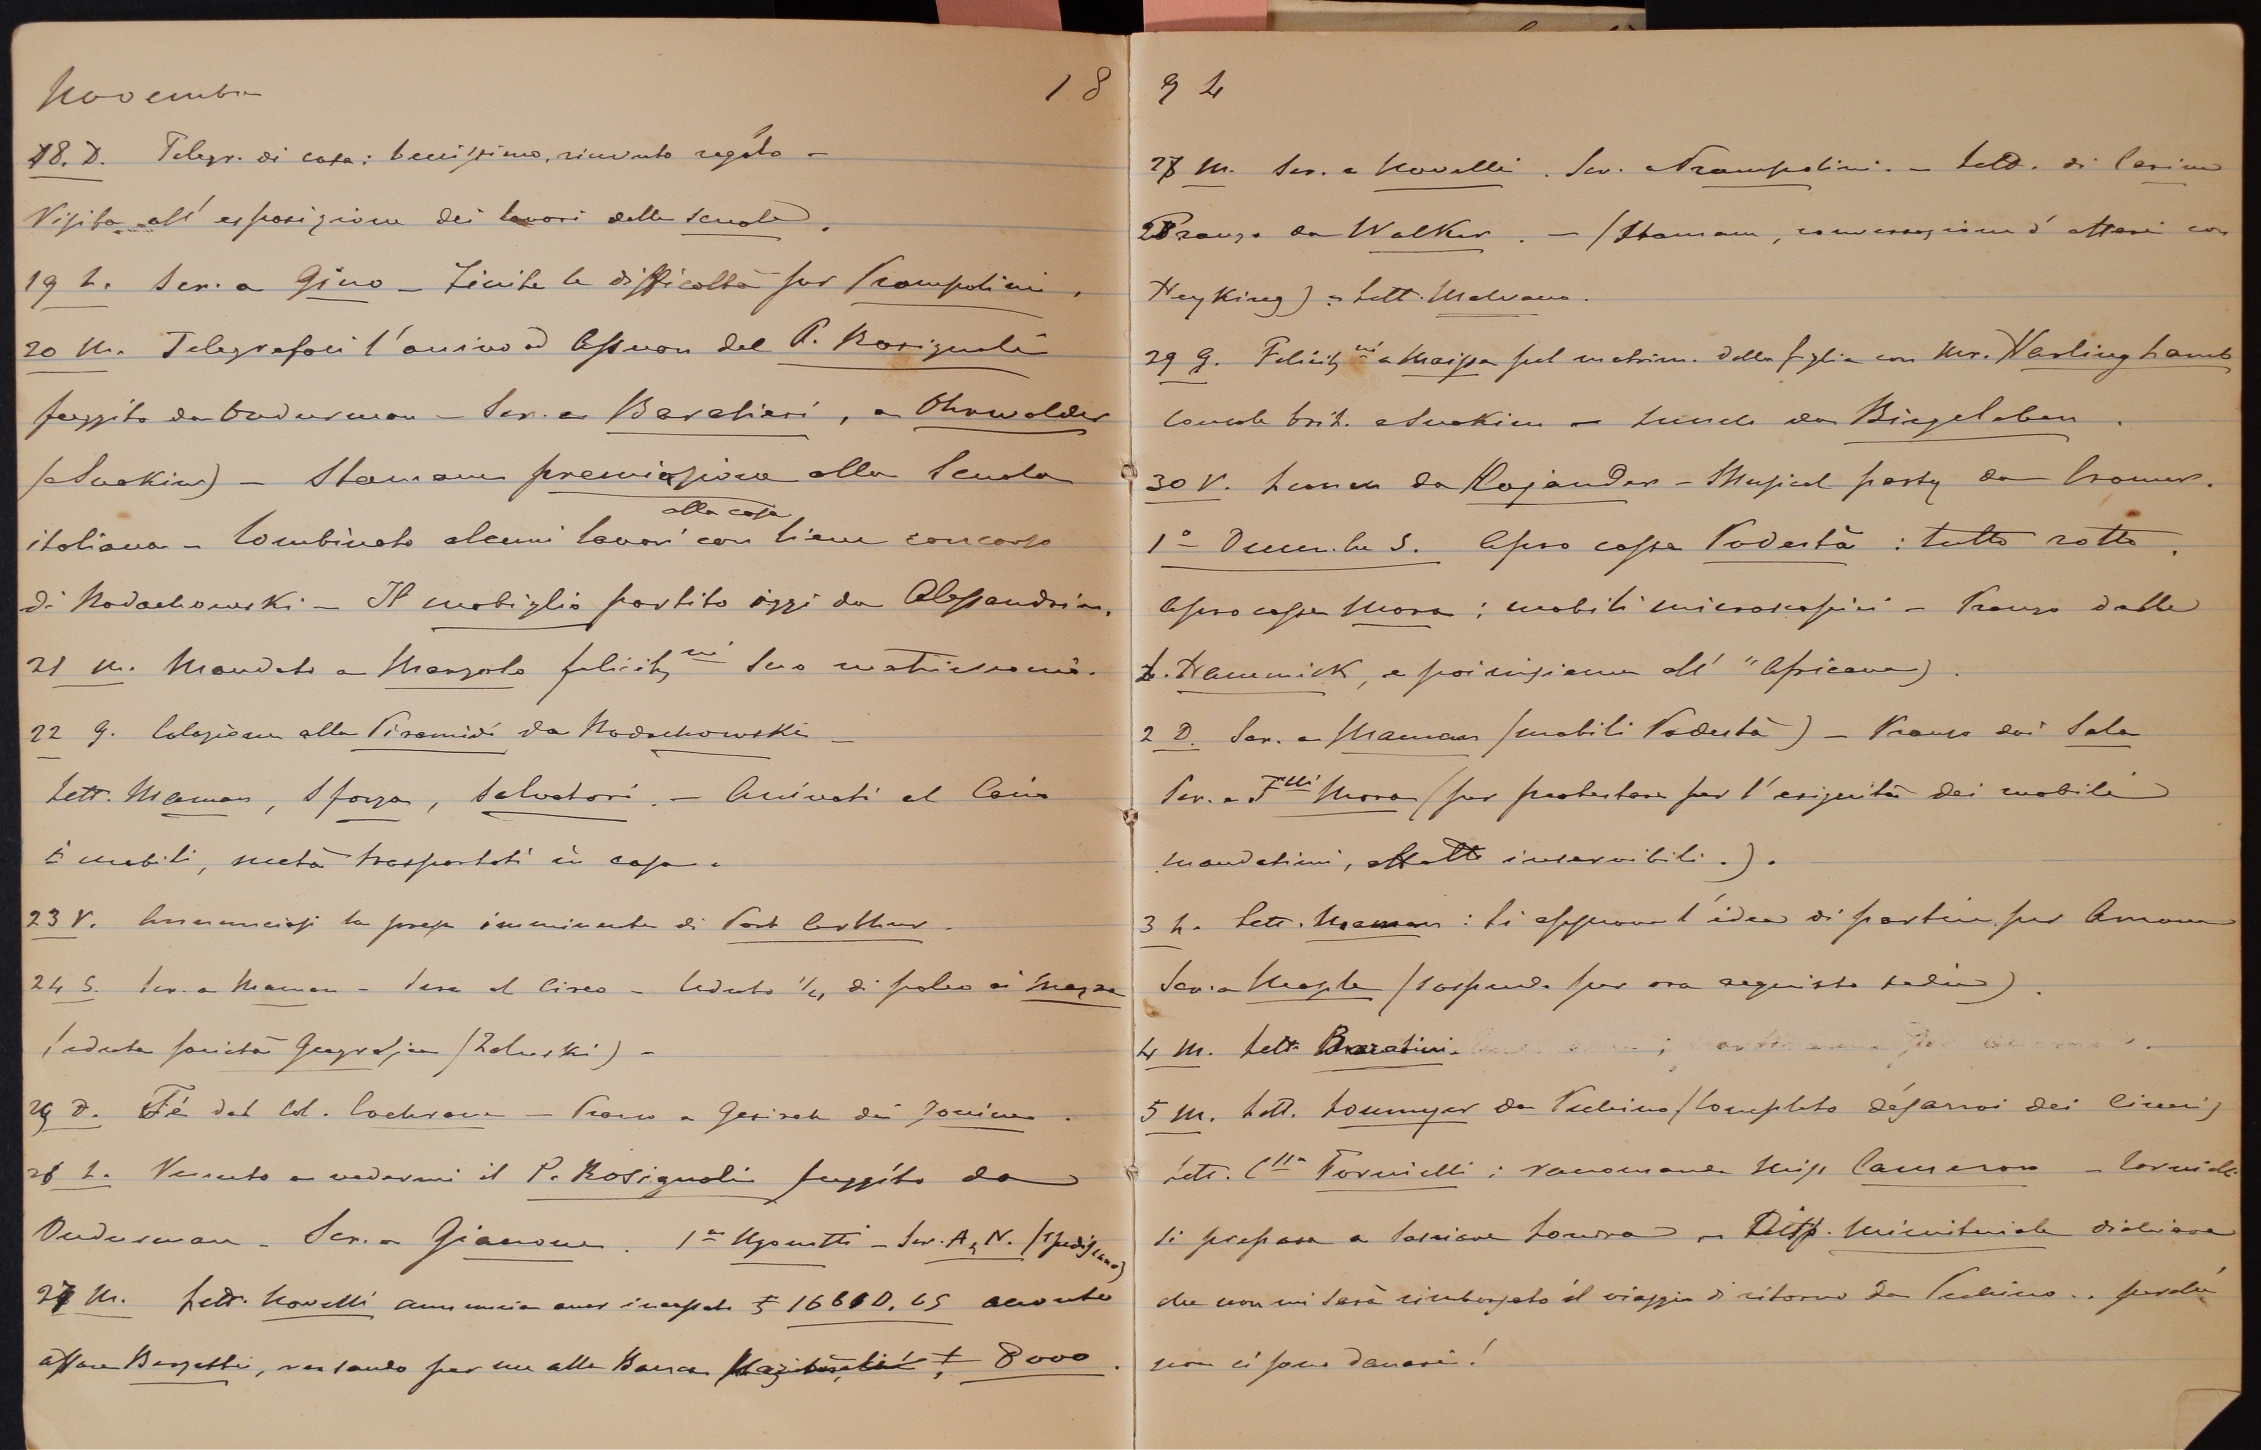 Novembre 18
18. D. Telegr. di casa: benissimo, ricevuto regalo –
Visita all' esposizione dei lavori delle scuole.
19 L. Scr. a Gino – Finite le difficoltà per Prampolini.
20 M. Telegrafasi l'arrivo ad Assuan del P. Rosignoli
fuggito da Ondurman – Scr. a Baratieri, a Ohrwalder
(a Suakim) – Stamane premiazione alla Scuola
italiana – Combinato alcuni lavori alla casa con
di Rodachowski – Il mobiglio partito oggi da Alessandria.
21 M. Mandato a felicitz.ni suo matrimonio.
22 G. Colazione alle Piramidi da Rodachowski –
Lett. Maman, Sforza, Salvatori. – Arrivati al Cairo
i mobili, metà trasportati in casa.
23 V. Annunciasi la presa imminente di Port Arthur.
24 S. Scr. a Maman – Sera al Circo – Ceduto 1/4 di palco ai
Seduta società Geografica (Zaluski) –
25 D. Té dal Col. Cochrane – a Gesireh dai
26 L. Venuto a vedermi il P. Rosignoli fuggito da
Ondurman – Scr. a Giannone. 1a Ugonotti – Scr. A, N. (spediscano)
27 M. Lett. Novelli annuncia aver incassato £ 16610.65 acconto
affare, versando per me alla Banca £ 8000.
94
27 M. Scr. a Novelli. Scr. a Prampolini. – Lett. di
28 Pranzo da Walker. – (Stamane, conversazione d'affari con
Heyking) – Lett. Malvano.
29 G. Felicitz.ni a Maissa sul matrim. della figlia con Mr.
console brit. a Suakim – Lunch da Biegeleben.
30 V. Lunch da Kojander – Musical party da Cromer.
1° Decembre S. Apro casse Podestà: tutto rotto.
Apro casse Mora: mobili microscopici – Pranzo dalle
L. Hammick, e poi insieme all' "Africana).
2 D. Scr. a Maman (mobili Podestà) – Pranzo dai Sala
Scr. a F.lli Mora (per protestare per l'esiguità dei mobili
mandatimi, affatto inservibili.).
3 L. Lett. Maman: si approva l'idea di partire per
Scr. a Maple (sospenda per ora acquisto sedie).
4 M. Lett. Baratieri.
5 M. Lett. Loumyer da Pechino (completo désarroi dei Cinesi)
Lett. C.ssa Tornielli: raccomanda Miss Cameron – Tornielli
si prepara a lasciare Londra – Disp. Ministeriale dichiara
che non mi sarà rimborsato il viaggio di ritorno da Pechino.. perché
non ci sono danari!